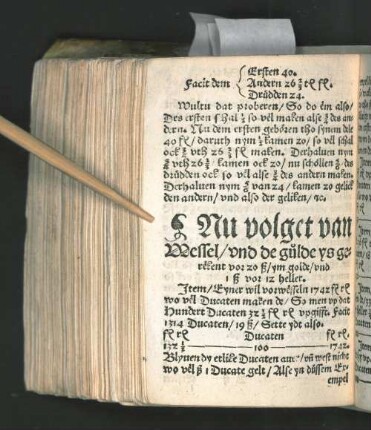 Ersten 40.
Facit dem Andern 26 2/3 fl.
Drüdden 24.
Wultu dat proberen/ So do em also/
Des ersten schal so vel maken alse des an
dern. Nu dem ersten gehören tho synem die
40 fl/ daruth nym kamen 20/ so vel schal
ock vth 26 fl maken. Derhaluen nym
vth 26 kamen ock 20/ nu schöllen des
drüdden ock so vel alse des andern maken.
Derhaluen nym van 24/ kamen 20 gelick
den andern/ vnd also der geliken/ ꝛc.
Nu volget van
Wessel/ vnd de gülde ys ge-
rekent vor 20 ß/ ym golde/ vnd
1 ß vor 12 heller.
Item/ Eyner wil vorwesseln 1742 fl
wo vel Ducaten maken de/ So men vp dat
hundert Ducaten 32 fl vpgifft. Facit
1314 Ducaten/ 19 ß/ Sette ydt also.
Ducaten
132 1/2 100 1742.
Blyuen dy etlike Ducaten auer/ vñ west nicht
wo vel ß 1 Ducate gelt/ Alse yn düssem Ex-
empel